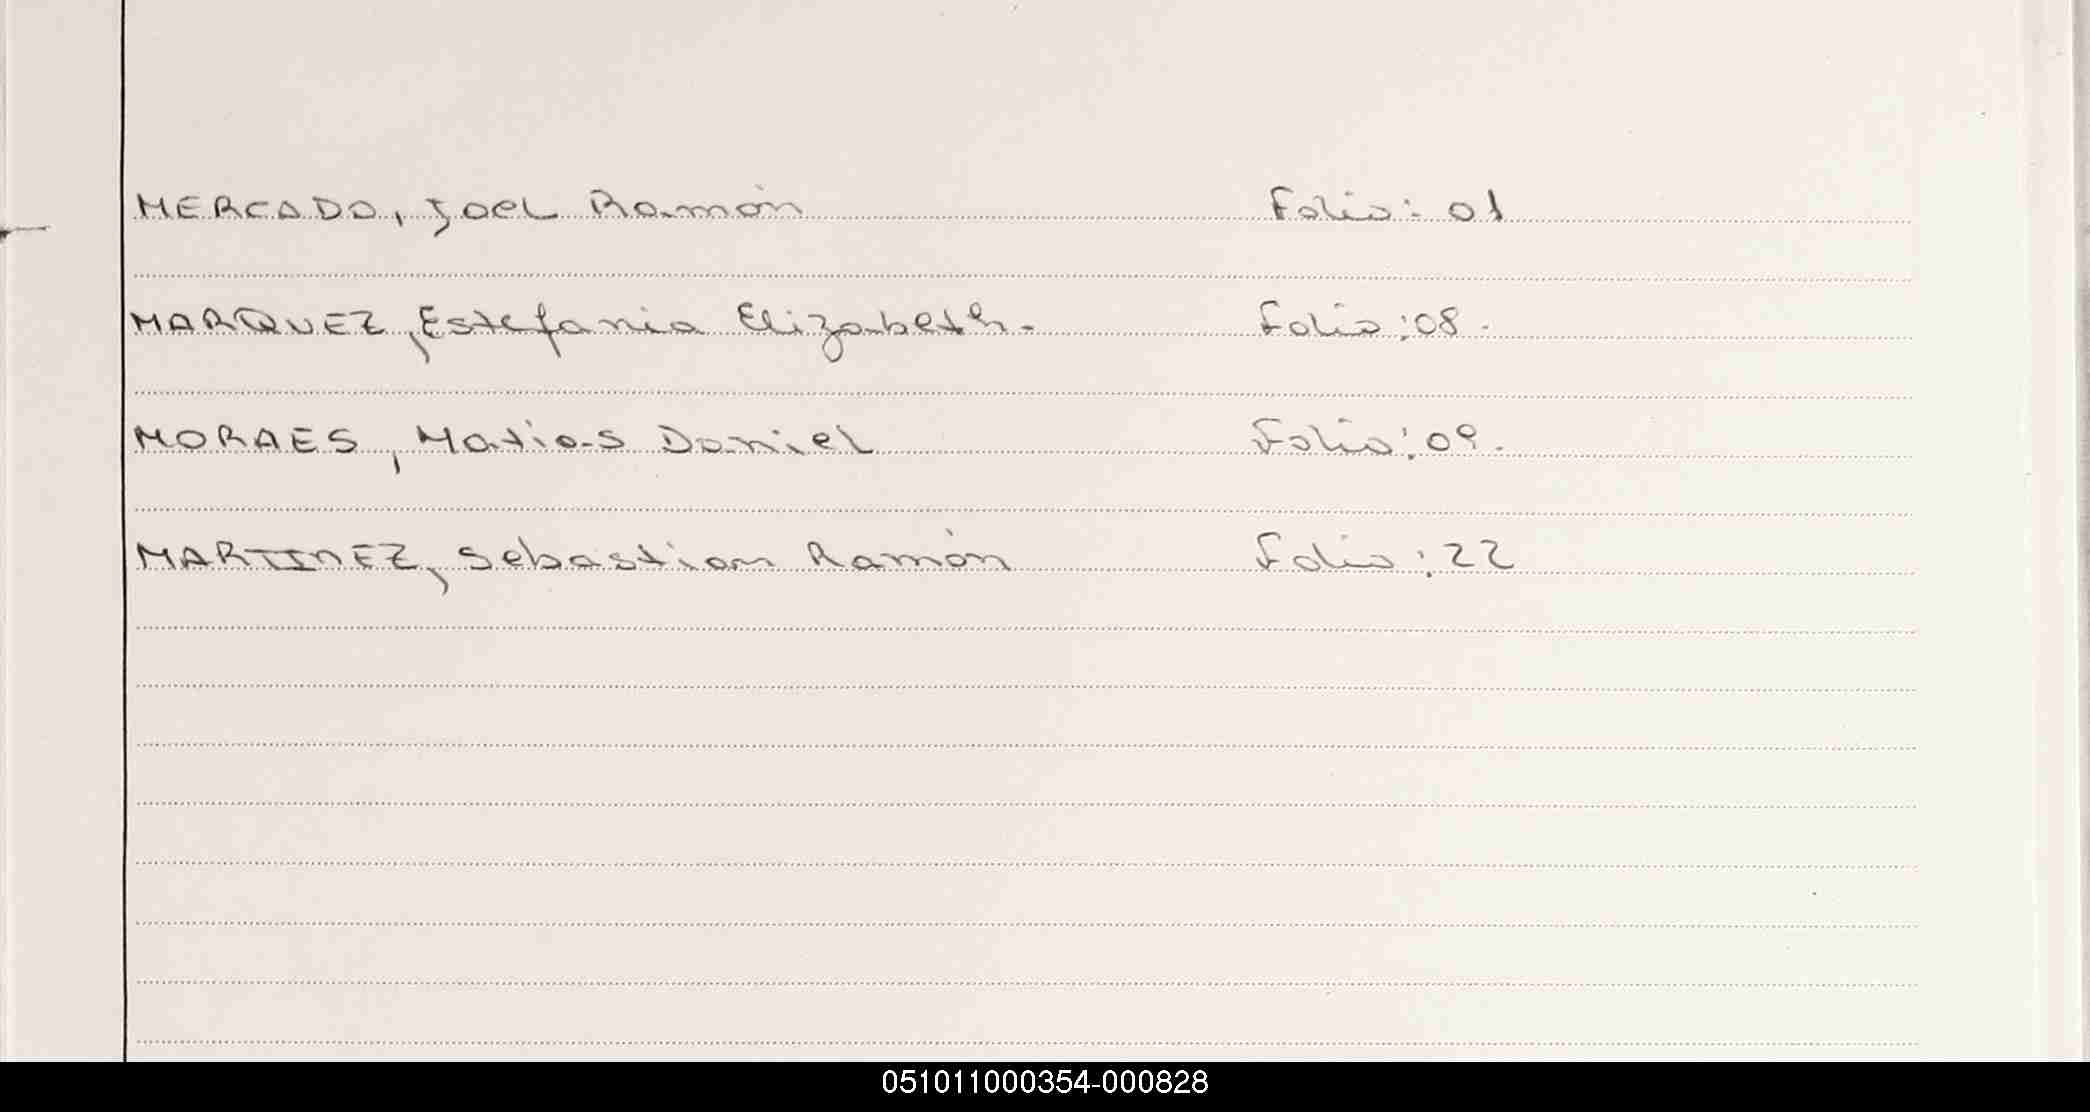 MERCADO, Joel Ramón Folio: 01
MARQUEZ, Estefania Elizabeth. Folio: 08.
MORAES, Matias Daniel Folio: 09.
MARTINEZ, Sebastian Ramón Folio: 22
051011000354-000828